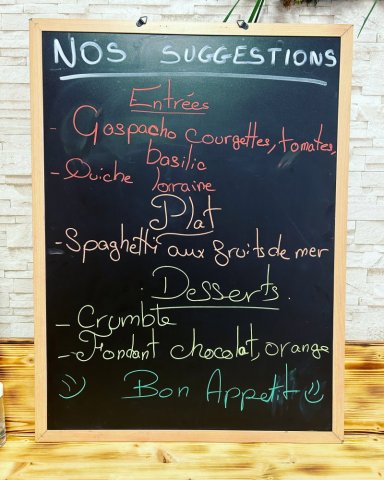 NOS SUGGESTIONS
Entrées
- Gaspacho courgettes, tomates,
basilic
- Quiche lorraine
Plat
- Spaghetti aux fruits de mer
Desserts
- Crumble
- Fondant chocolat, orange
Bon Appetit